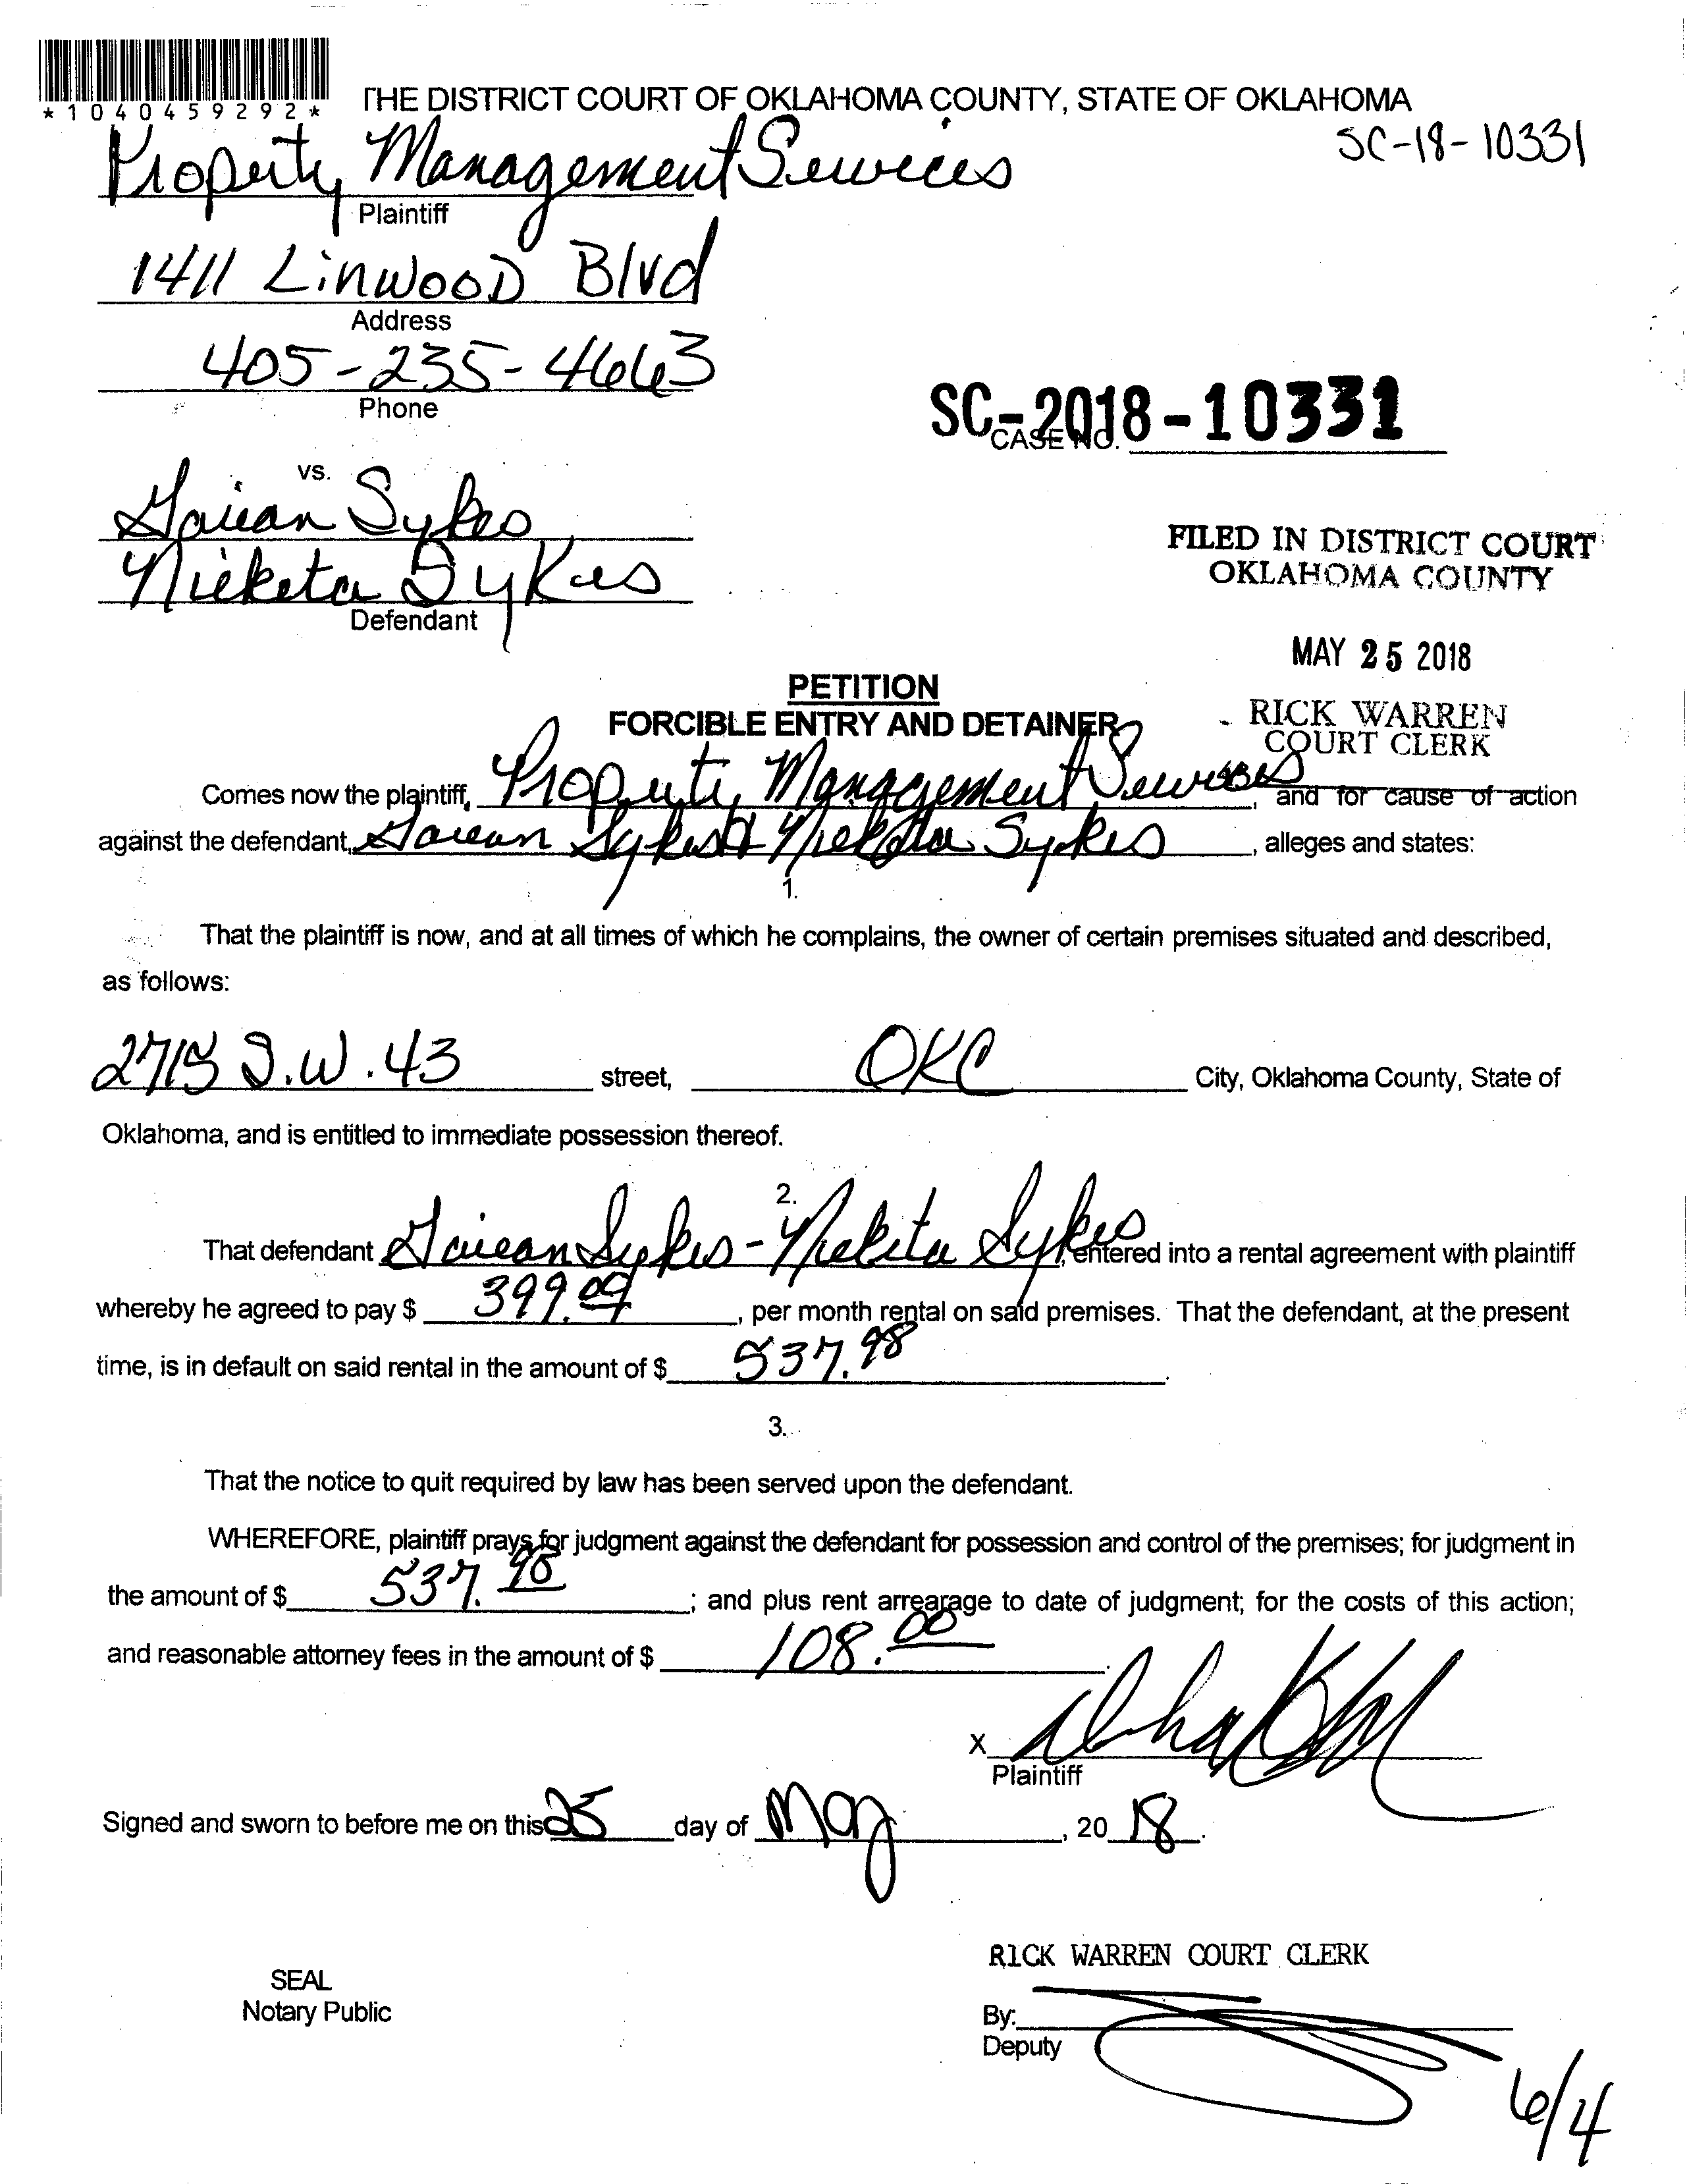 *1040459292*
THE DISTRICT COURT OF OKLAHOMA COUNTY, STATE OF OKLAHOMA
SC-18-10331
Property Management Services
Plaintiff
1411 Linwood Blvd
Address
405-235-4663
Phone
SC-2018-10331
CASE NO.
vs.
Sykes
Nicketa Sykes
Defendant
FILED IN DISTRICT COURT
OKLAHOMA COUNTY
MAY 25 2018
RICK WARREN
COURT CLERK
PETITION
FORCIBLE ENTRY AND DETAINER
Comes now the plaintiff, Property Management Services, and for cause of action
against the defendant, Sykes & Nicketa Sykes, alleges and states:
1.
That the plaintiff is now, and at all times of which he complains, the owner of certain premises situated and described,
as follows:
2715 S.W. 43 street, OKC City, Oklahoma County, State of
Oklahoma, and is entitled to immediate possession thereof.
2.
That defendant Sykes - Nicketa Sykes, entered into a rental agreement with plaintiff
whereby he agreed to pay $ 399.00, per month rental on said premises. That the defendant, at the present
time, is in default on said rental in the amount of $ 537.98.
3.
That the notice to quit required by law has been served upon the defendant.
WHEREFORE, plaintiff prays for judgment against the defendant for possession and control of the premises; for judgment in
the amount of $ 537.98; and plus rent arrearage to date of judgment; for the costs of this action;
and reasonable attorney fees in the amount of $ 108.00.
X
Plaintiff
Signed and sworn to before me on this 25 day of May, 2018.
RICK WARREN COURT CLERK
SEAL
Notary Public
By:
Deputy
6/4